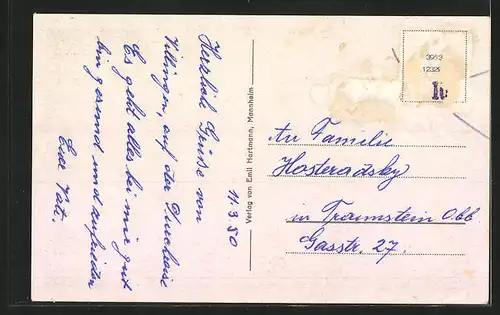 11.3.50
Herzliche Grüsse von
Villingen, auf der Durchreise
Es geht alles bei mir gut
bin gesund und zufrieden
Eure Tat.
Verlag von Emil Hartmann, Mannheim
3913
12325
An Familie
Hosteradsky
in Traunstein Obb
Gasstr. 27.